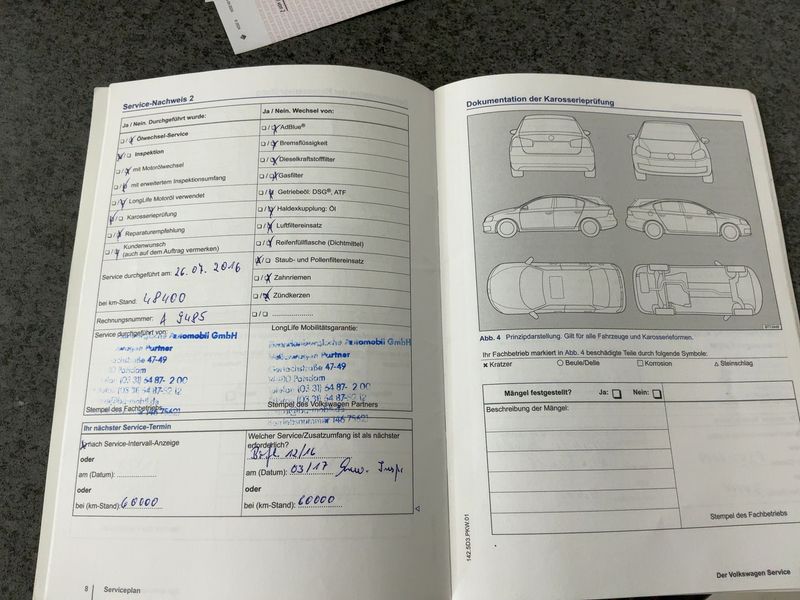 Service-Nachweis 2
Ja / Nein. Durchgeführt wurde:
Ölwechsel-Service
Inspektion
mit Motorölwechsel
mit erweitertem Inspektionsumfang
LongLife Motoröl verwendet
Karosserieprüfung
Reparaturempfang
Kundenwunsch
(auch auf dem Auftrag vermerken)
Service durchgeführt am: 26.07.2016
bei km-Stand. 48400
Rechnungsnummer: A 9485
Service durchgeführt von:
Partner
47-49
Potsdam
(03 31) 64 87- 2 00
Stempel des Fachbetriebs
Ja / Nein. Wechsel von:
AdBlue®
Bremsflüssigkeit
Dieselkraftstofffilter
Gasfilter
Getriebeöl: DSG®, ATF
Haldexkupplung: Öl
Luftfiltereinsatz
Reifenfüllflasche (Dichtmittel)
Staub- und Pollenfiltereinsatz
Zahnriemen
Zündkerzen
LongLife Mobilitätsgarantie:
GmbH
Partner
47-49
Potsdam
(03 31) 64 87- 2 00
Stempel des Volkswagen Partners
Ihr nächster Service-Termin
nach Service-Intervall-Anzeige
oder
am (Datum):
oder
bei (km-Stand): 60000
Welcher Service/Zusatzumfang ist als nächster
erforderlich?
12/16
am (Datum): 03/17 Insp.
oder
bei (km-Stand): 60000
8 Serviceplan
Dokumentation der Karosserieprüfung
Abb. 4 Prinzipdarstellung. Gilt für alle Fahrzeuge und Karosserieformen.
Ihr Fachbetrieb markiert in Abb. 4 beschädigte Teile durch folgende Symbole:
Kratzer Beule/Delle Korrosion Steinschlag
Mängel festgestellt? Ja: Nein:
Beschreibung der Mängel:
Stempel des Fachbetriebs
142.5D3.PKW.01
Der Volkswagen Service